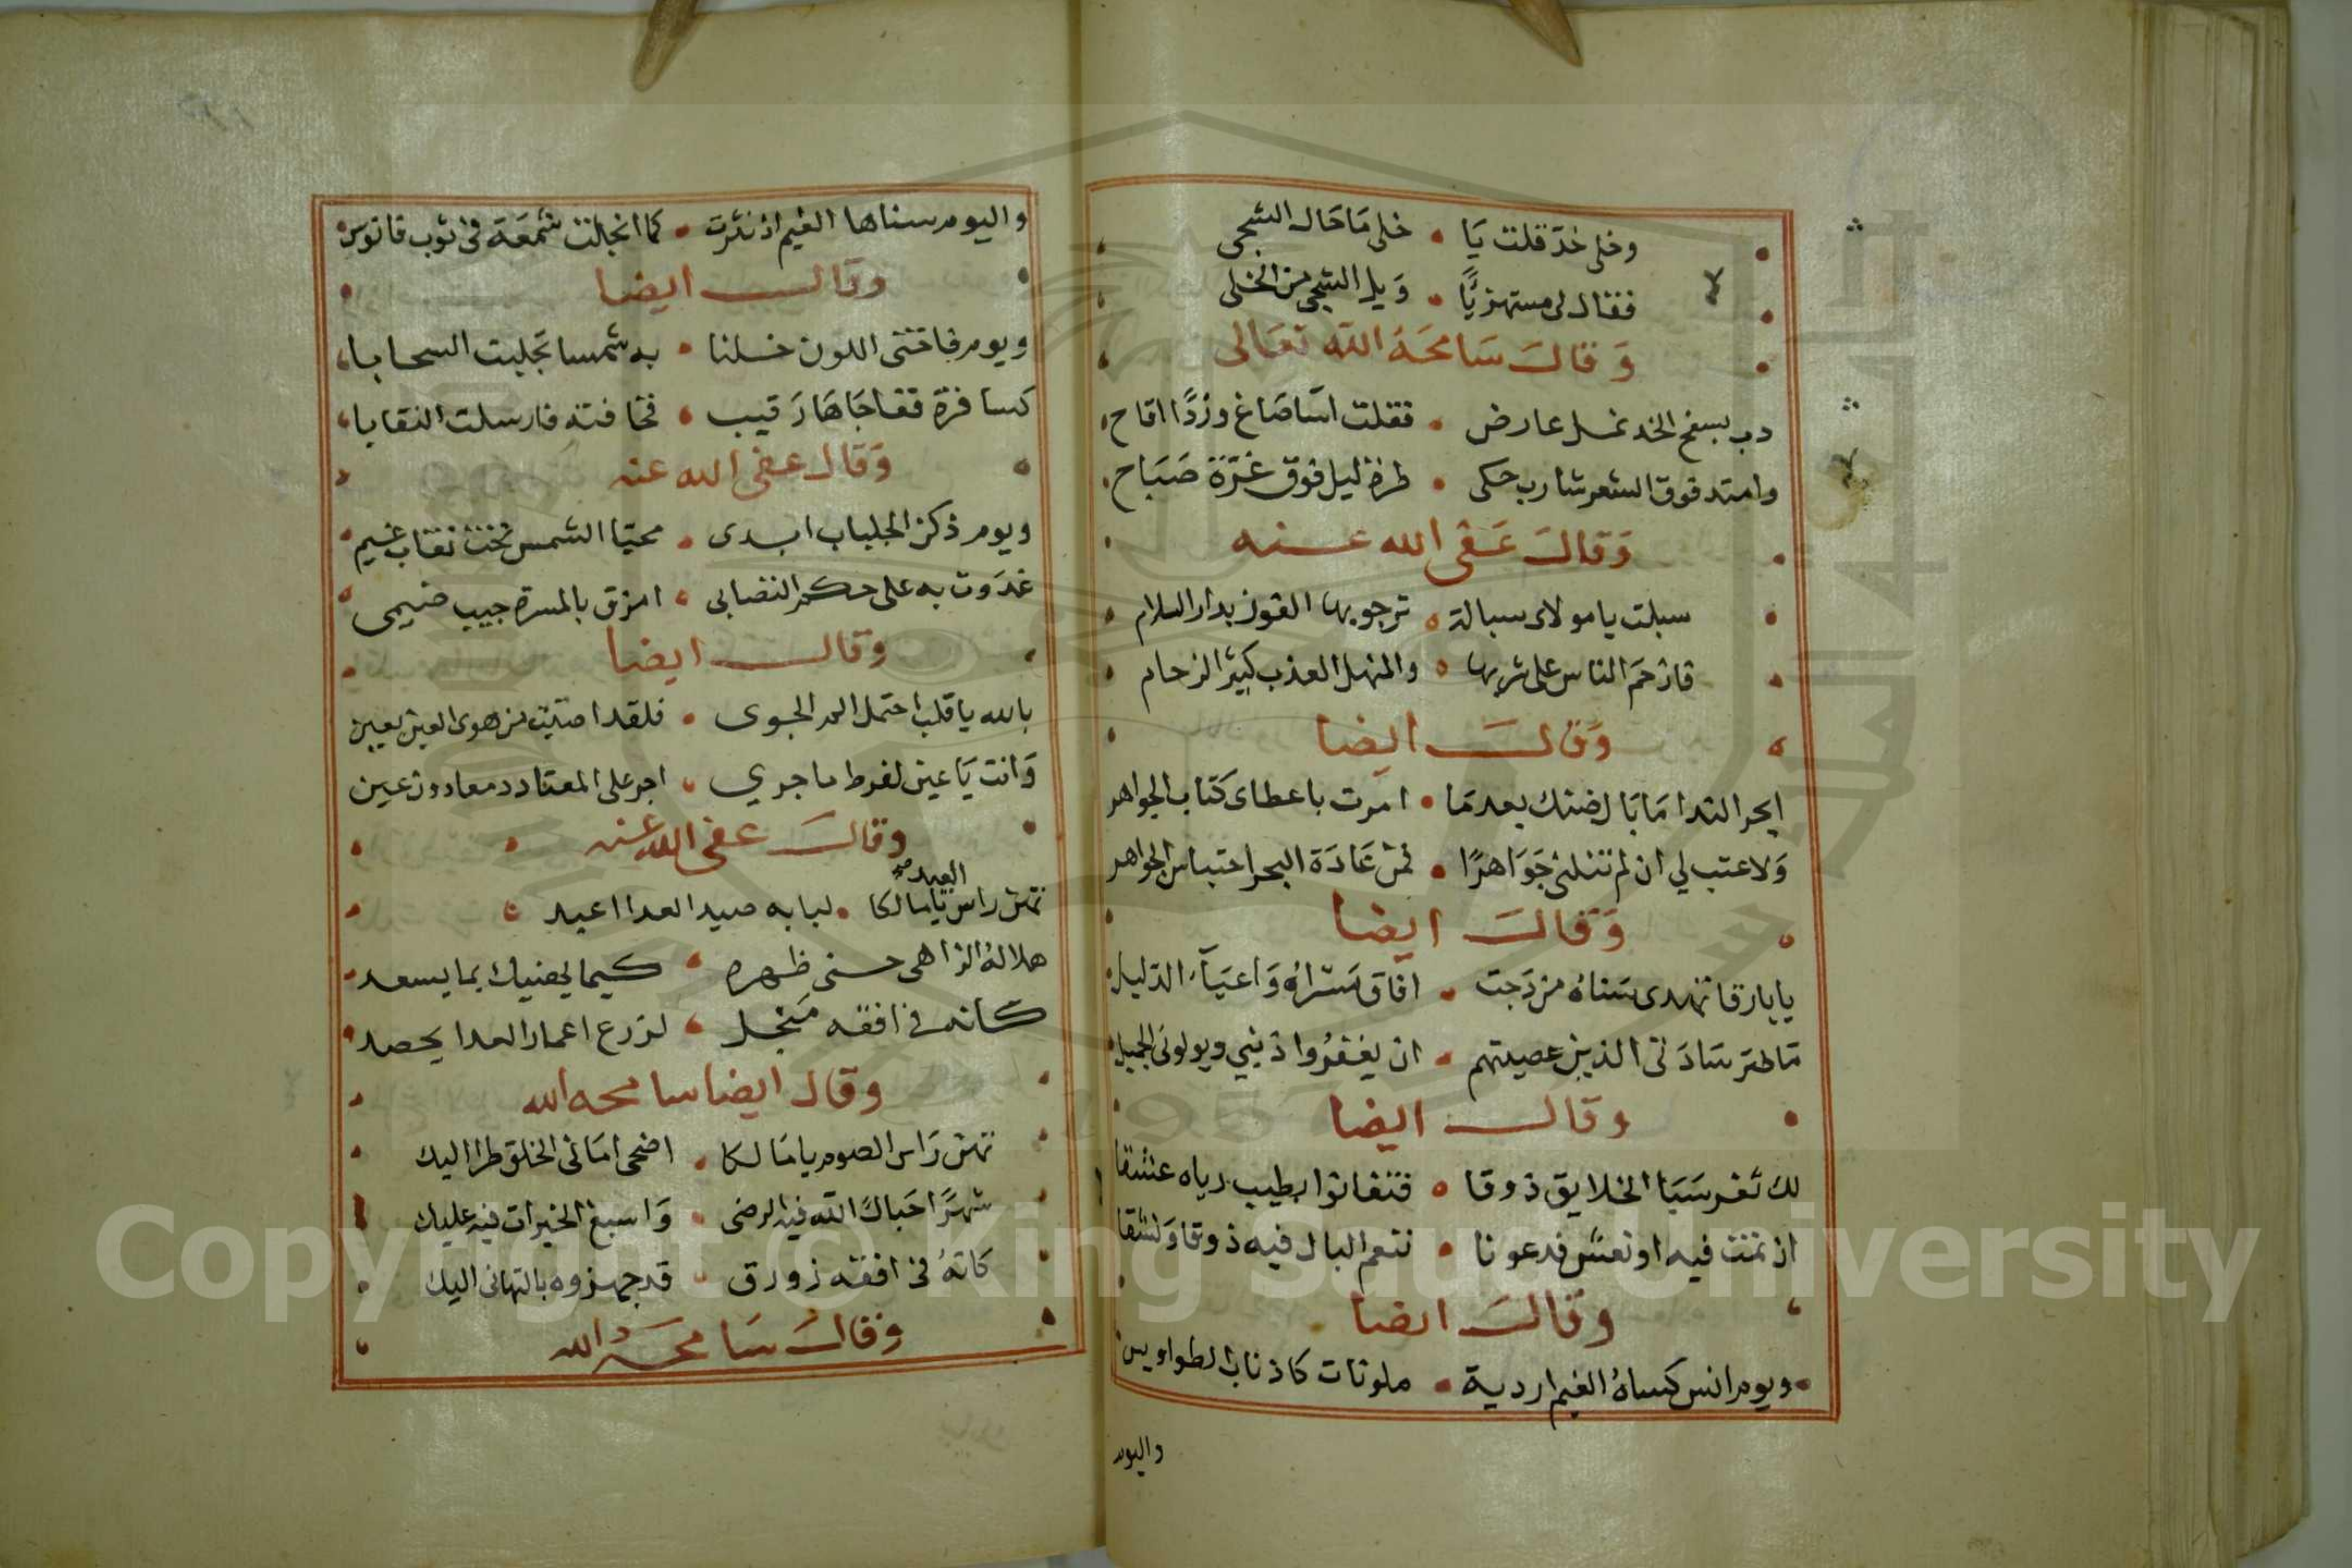 وخلى خد قلت يا • خلى ما حال الشجى
فقال لى مستهزيًا • ويل الشجى من الخلى
وقال سامحه الله تعالى
دب بسفح الخد نمل عارض • فقلت اسا صاغ وردًا اقاح
وامتد فوق الشعر شارب حكى • طرة ليل فوق غرّة صباح
وقال عفى الله عنه
سبلت يا مولاى سبالة • ترجو بها الفوز بدار السلام
فازدحم الناس على شربها • والمنهل العذب كثير الزحام
وقال ايضا
ابحر الندا ما بال ضنك بعدما • امرت باعطاى كتاب الجواهر
ولا عتب لي ان لم تنلنى جواهرًا • فمن عادة البحر احتباس الجواهر
وقال ايضا
يا بارقا تهدى سناه من دجت • افاق مسراه واعياء الدليل
ما طر سادتى الذين عصيتهم • ان يغفروا ذنبي ويولونى الجميل
وقال ايضا
لك ثغر سبا الخلايق ذوقا • فتفانوا بطيب رياه عشقا
اذ نمت فيه او نعش فدعونا • ننعم البال فيه ذوقا ونشقا
وقال ايضا
ويوم انس كساه الغيم اردية • ملونات كاذناب الطواويس
واليوم
واليوم سناها الغيم اذ نثرت • كما انجلت شمعة فى ثوب فانوس
وقال ايضا
ويوم فاختى اللون خلنا • به شمسا تجلبت السحابا
كسافرة ففاجاها رقيب • فخافته فارسلت النقابا
وقال عفى الله عنه
ويوم ذكن الجلباب ابدى • محيّا الشمس تحت نقاب غيم
غدوت به على حكم التصابى • امزق بالمسرة جيب ضيمى
وقال ايضا
بالله يا قلب احتمل الم الجوى • فلقد اصبت من هوى العين بعين
وانت يا عين لفرط ما جري • اجر على المعتاد دمعا دون عين
وقال عفى الله عنه
العيد صح
تهن راس يا مالكا • لبابه صيد العدا اعبد
هلاله الزاهى حسنى ظهره • كيما يحنيك بما يسعد
كانه فى افقه منجل • لزرع اعمار العدا يحصد
وقال ايضا سامحه الله
تهن راس الصوم يا مالكا • اضحى امانى الخلق طرا اليك
شهرًا حباك الله فيه الرضى • واسبغ الخيرات فيه عليك
كانه فى افقه زورق • قد جهزوه بالتهانى اليك
وقال سامحه الله
Copyright © King Saud University